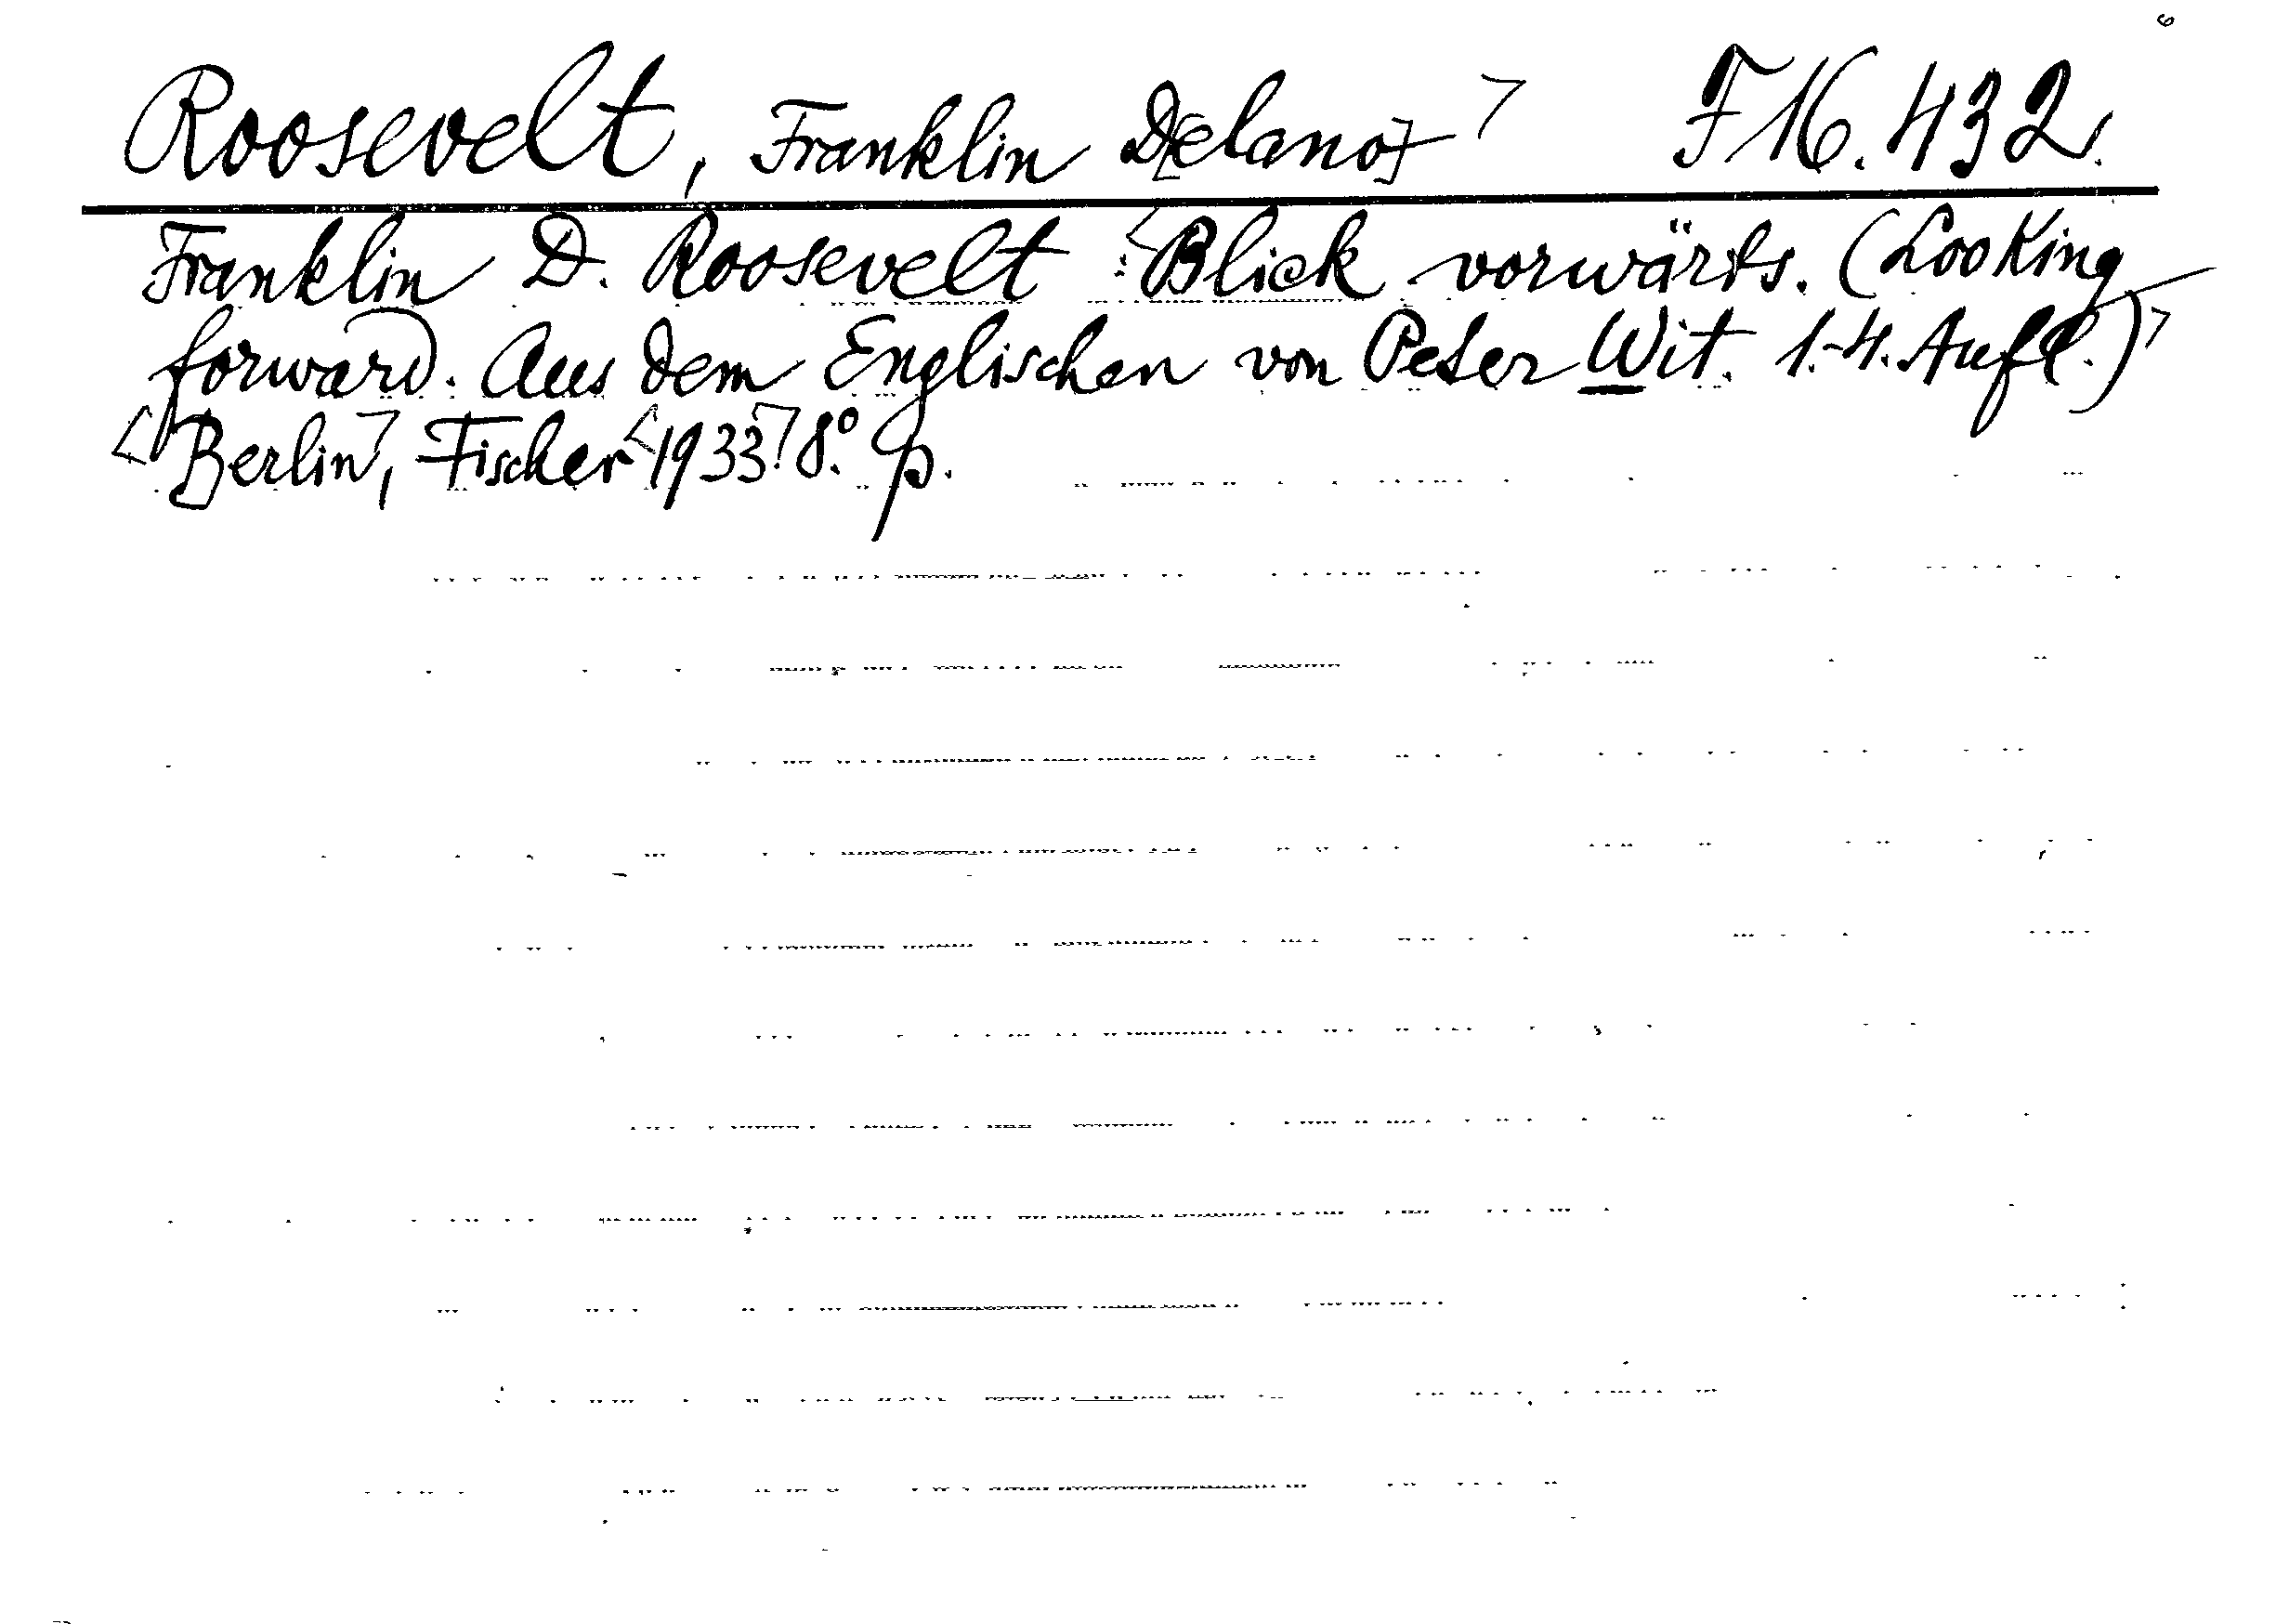 Roosevelt, Franklin D[elano] F 16.432.
Franklin D. Roosevelt: Blick vorwärts. (Looking
forward. Aus dem Englischen von Peter Wit. 1.-4. Aufl.)
Berlin, Fischer 1933. 8.° p.